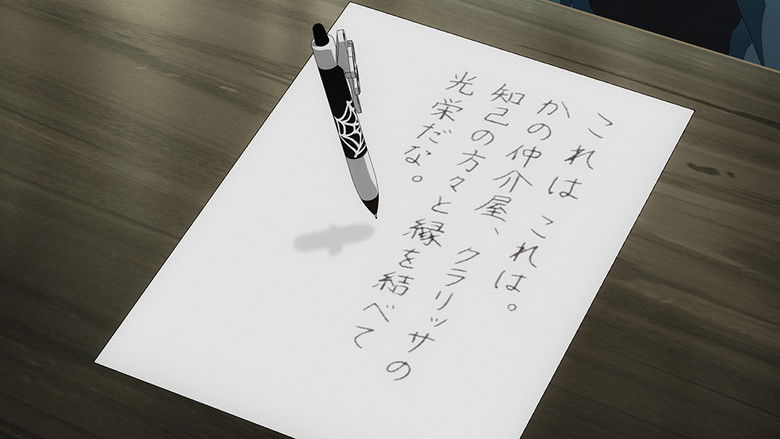 これは これは。
かの仲介屋、クラリッサの
知己の方々と縁を結べて
光栄だな。